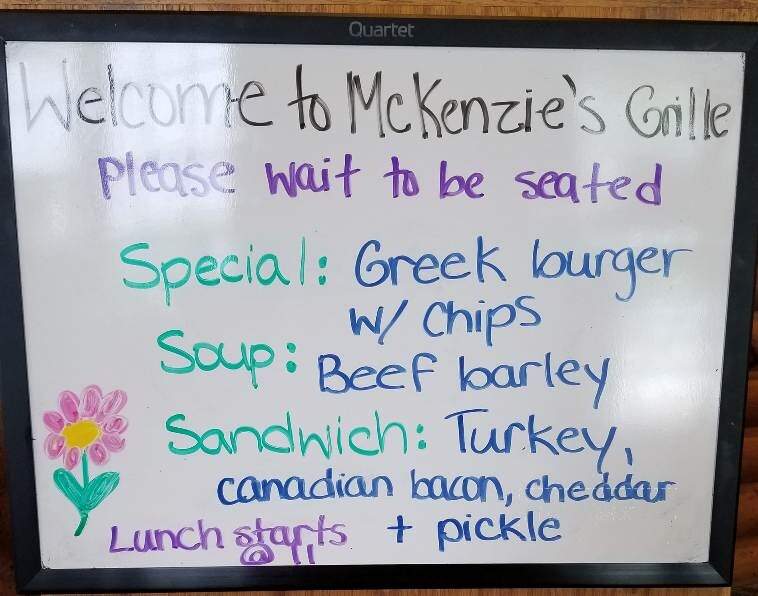 Quartet
Welcome to McKenzie's Grille
Please wait to be seated
Special: Greek burger
w/ Chips
Soup: Beef barley
Sandwich: Turkey,
canadian bacon, cheddar
+ pickle
Lunch starts
@ 11